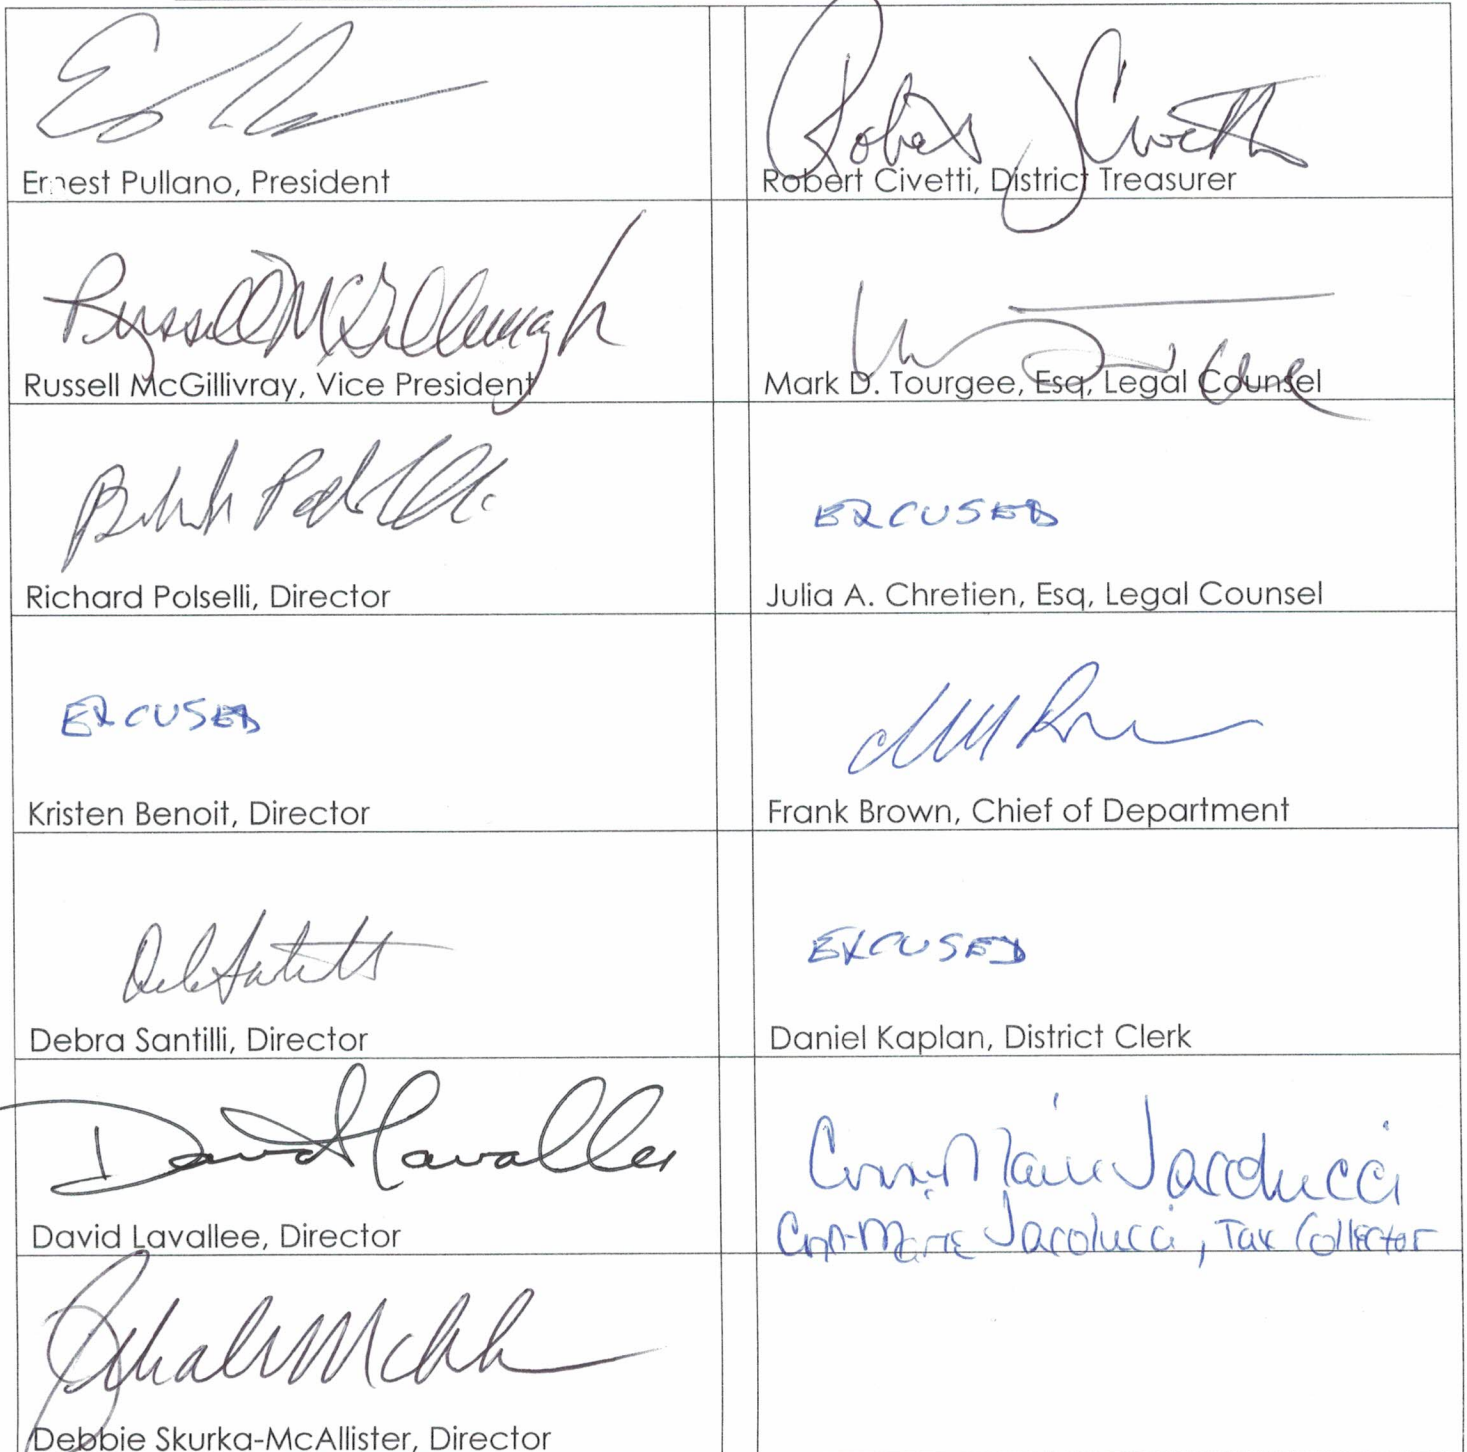 Ernest Pullano, President
Robert J Civetti
Robert Civetti, District Treasurer
Russell McGillivray
Russell McGillivray, Vice President
Mark D. Tourgee, Esq, Legal Counsel
Richard Polselli, Director
EXCUSED
Julia A. Chretien, Esq, Legal Counsel
EXCUSED
Kristen Benoit, Director
Frank Brown, Chief of Department
Deb Santilli
Debra Santilli, Director
EXCUSED
Daniel Kaplan, District Clerk
David Lavallee
David Lavallee, Director
Ann-Marie Iacolucci
Ann-Marie Iacolucci, Tax Collector
Debbie Skurka-McAllister, Director